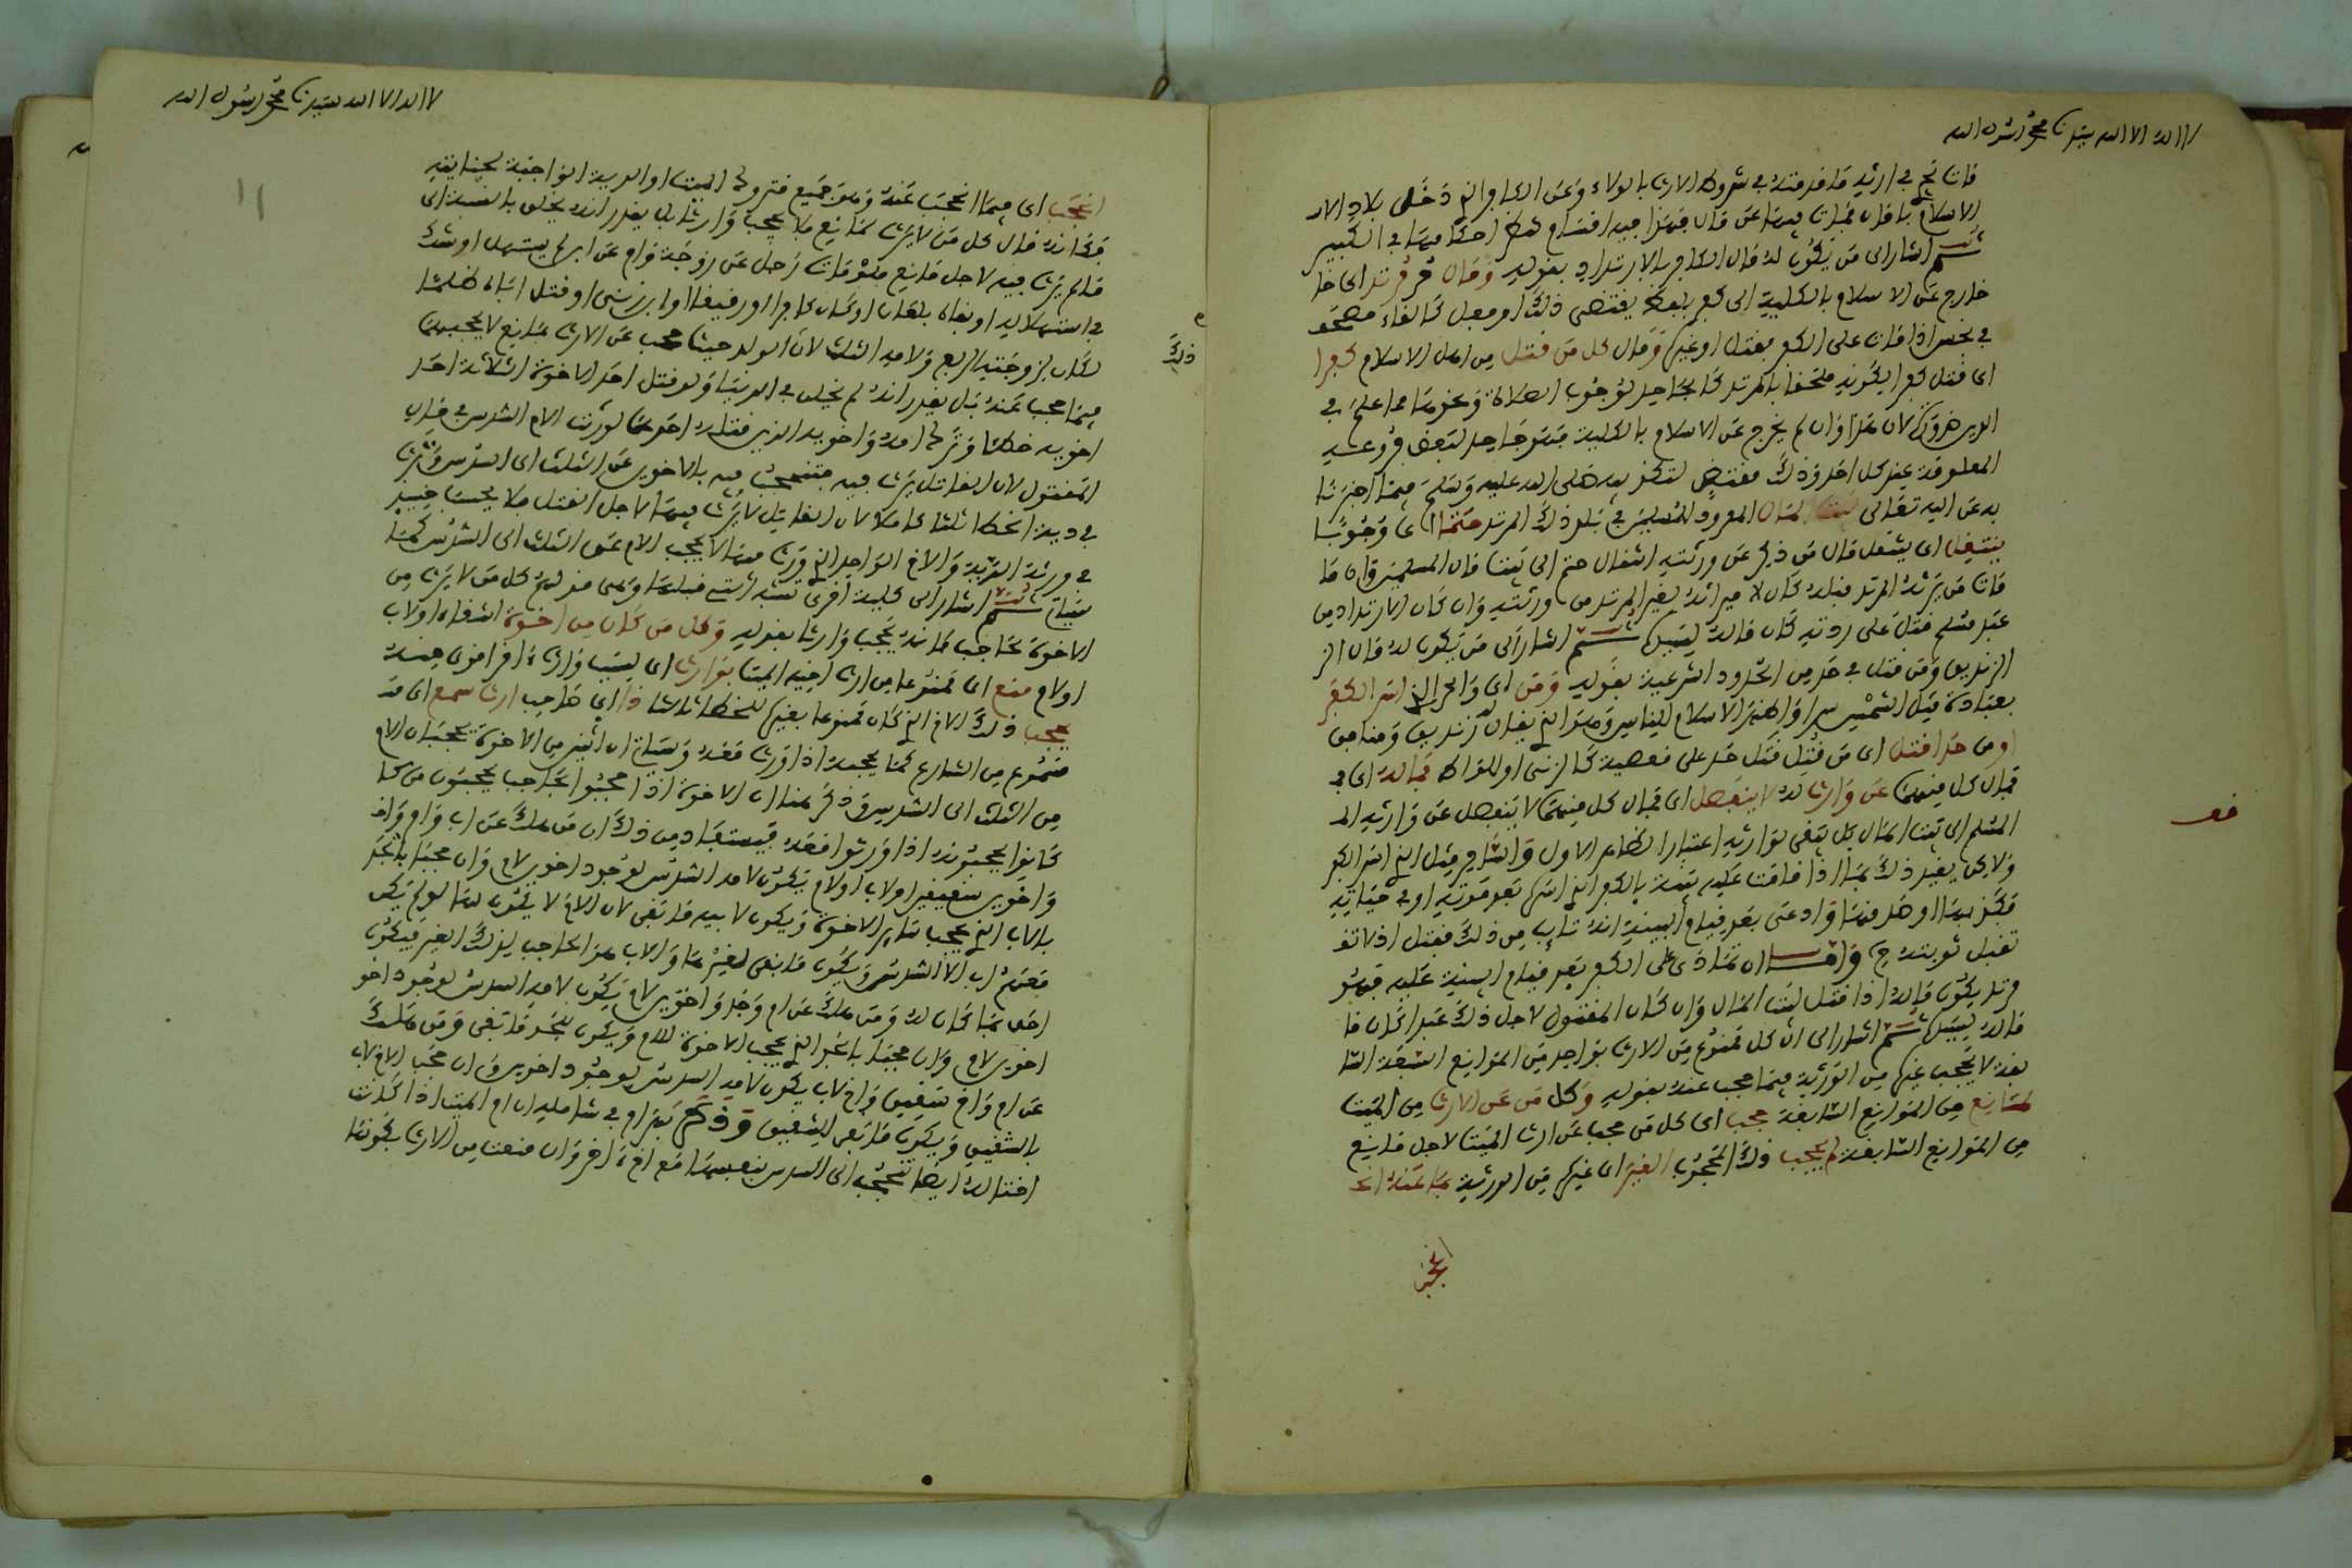 لا اله الا الله سيدنا محمد رسول الله
مات نجم في ارثه ما قدمته في شروط الارث بالولاء وعن الكافر الذي دخل بلاد الا
الاسلام بامان فمات فيها عن مال فهذا فيه اقسام تنظر احكامها في الكبير
ثم اشار الى من يكون له مال الكافر بالارتداد بقوله ومال مرتد اى خا
خارج عن الاسلام بالكلية الى كفر بلفظ يقتضى ذلك او فعل كالقاء مصحف
في نجس اذا مات على الكفر بقتل او غيره ومال كل من قتل من اهل الاسلام كفرا
اى قتل كفرا لكونه ملحقا بالمرتد كالجاحد لوجوب الصلاة ونحوها مما علم في
الدين ضرورة لان هذا وان لم يخرج عن الاسلام بالكلية فهو جاحد لبعض فروعه
المعلومة عند كل احد وذلك مقتض لتكذيبه صلى الله عليه وسلم فيما اخبرنا
به عن الله تعالى لبيت المال المعدود للمسلمين في بلد ذلك المرتد حتما اى وجوبا
ينتقل اى ينتقل مال من ذكر عن ورثته انتقال حتم الى بيت مال المسلمين وان ما
مات من يرثه المرتد قبله كان لا ميراثه لغير المرتد من ورثته وان كان الارتداد من
عبد مسلم قتل على ردته كان ماله لسيده ثم اشار الى من يكون له مال الز
الزنديق ومن قتل في حد من الحدود الشرعية بقوله ومن اى والحر الذي اسر الكفر
بعبادة مثل الشمس سرا واظهر الاسلام للناس وهو الذي يقال له زنديق ومنافق
او من حدا قتل اى من قتل قتل حد على معصية كالزنى او اللواط فماله اى فـ
فمال كل منهما عن وارث له لا ينفصل اى فمال كل منهما لا ينفصل عن وارثه المـ
المسلم الى بيت المال بل يبقى لوارثه اعتبارا لظاهر الاول والثاني مثل الذي اسر الكفر
ولاكن يقيد ذلك بما اذا قامت عليه بينة بالكفر الذي اسره بعد موته او في حياته
فكذبها او صدقها وادعى بعد قيام البينة انه تائب من ذلك فقتل اذ لا تقـ
تقبل توبته ح واما ان تمادى على الكفر بعد قيام البينة عليه فهو
مرتد يكون ماله اذا قتل لبيت المال وان كان المقتول لاجل ذلك عبدا كان ما
ماله لسيده ثم اشار الى ان كل ممنوع من الارث بواحد من الموانع السبعة السا
بقة لا يحجب غيره من الورثة فيما حجب عنه بقوله وكل من عن الارث من الميت
لمانع من الموانع السابقة حجب اى كل من حجب عن ارث الميت لاجل مانع
من الموانع السابقة لم يحجب ذلك المحجوب الغير اى غيره من الورثة عما عنه انحـ
انحجب
فهو
لا اله الا الله سيدنا محمد رسول الله
١١
انحجب اى فيما انحجب عنه وهو جميع متروك الميت او الدية الواجبة لجنايته
فكانه قال كل من لا يرث لمانع فلا يحجب وارثا بل يقدر انه لم يخلق بالنسبة الى
ما لم يرث فيه لاجل مانع فلو مات رجل عن زوجة وام عن ابن لم يستهل او شك
في استهلاله او نفاه بلعان او كان كافرا او رقيقا او ابن زنى او قتل اباه ظلما
لكان لزوجته الربع ولامه الثلث لان الولد حيث حجب عن الارث لمانع لا يحجبهما
ذلك
فيما حجب عنه بل يقدر انه لم يخلق في الدنيا ولو قتل احد الاخوة الثلاثة احد
اخويه خطأ وترك امه واخويه الذين قتله احدهما لورثت الام السدس في مال
المقتول لان القاتل يرث فيه فتنحجب فيه بالاخوين عن الثلث الى السدس وترث
في دية الخطأ ثلثا كاملا لان القاتل لا يرث فيها لاجل القتل فلا يحسب حينئذ
في ورثة الدية والاخ الواحد الذي ورث فيها لا يحجب الام عن الثلث الى السدس كما
سياتى ثم اشار الى كلية اخرى تشبه التى قبلها وهى قولهم كل من لا يرث من
الاخوة لحاجب فانه يحجب وارثا بقوله وكل من كان من اخوة اشقاء او لاب
او لام منع اى ممنوعا من ارث اخيه الميت بوارث اى لسبب وارث اخر اقوى منه
يحجب ذلك الاخ الذي كان ممنوعا بغيره للحظ ثالثا ذا اى صاحب ارث سمع اى قد
مسموع من الشارع كما يحجبه اذا ورث معه وسياتى ان اثنين من الاخوة يحجبان الام
من الثلث الى السدس وذكر هنا ان الاخوة اذا حجبوا لحاجب يحجبون من كا
كانوا يحجبونه اذا ورثوا معه فيستفاد من ذلك ان من هلك عن اب وام واخ
واخوين شقيقين او لاب او لام يكون لامه السدس لوجود اخوين لام وان حجبا بالجد
بالاب الذي يحجب سائر الاخوة ويكون لابيه ما بقى لان الام لا يكون لها لو لم يكن
معهم اب الا السدس ويكون ما بقى لغيرها والاب هو الحاجب لذلك الغير فيكون
احق بما كان له ومن هلك عن ام وجد واخوين لام يكون لامه السدس لوجود اخو
اخوين لام وان حجبا بالجد الذي يحجب الاخوة للام ويكون للجد ما بقى ومن هلك
عن ام واخ شقيق واخ لاب يكون لامه السدس لوجود اخوين وان حجب الاخ لاب
بالشقيق ويكون ما بقى للشقيق وذكر بهرام في شامله ان ام الميت اذا كانت
اختا له ايضا تنحجب الى السدس بنفسها مع اخ اخر وان منعت من الارث بكونها